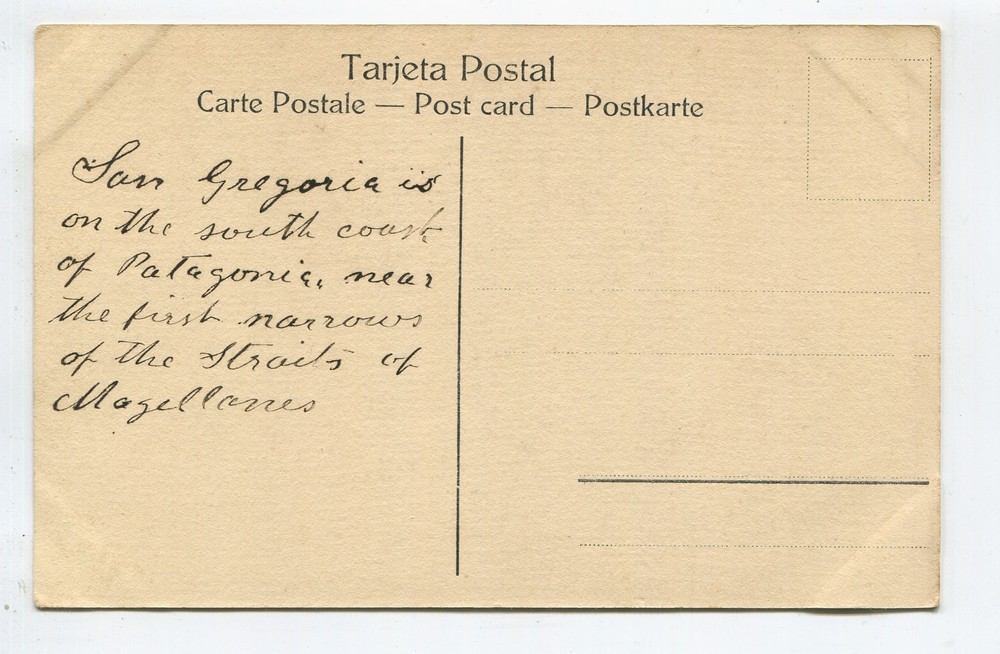 Tarjeta Postal
Carte Postale — Post card — Postkarte
San Gregoria is
on the south coast
of Patagonia, near
the first narrows
of the Straits of
Magellanes